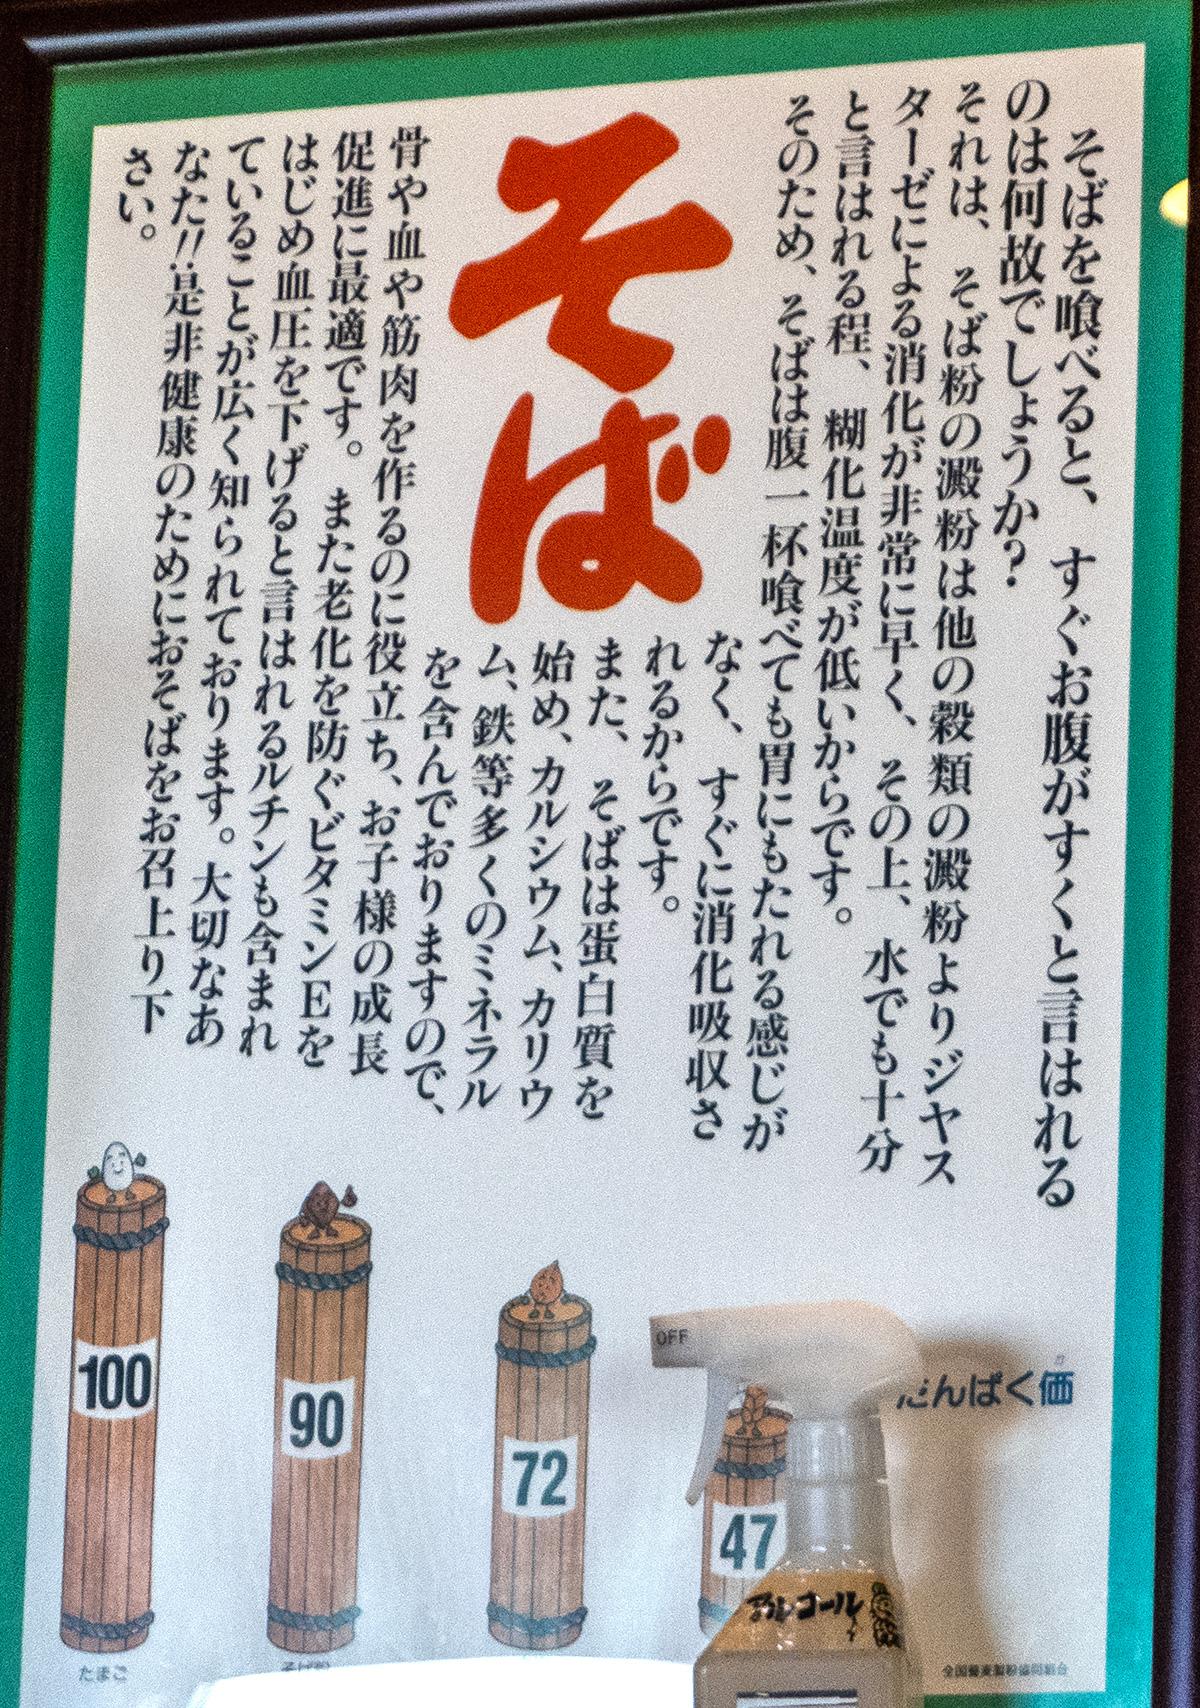 そばを喰べると、すぐお腹がすくと言はれる
のは何故でしょうか?
それは、そば粉の澱粉は他の穀類の澱粉よりジヤス
ターゼによる消化が非常に早く、その上、水でも十分
と言はれる程、糊化温度が低いからです。
そのため、そばは腹一杯喰べても胃にもたれる感じが
なく、すぐに消化吸収さ
れるからです。
そば
また、そばは蛋白質を
始め、カルシウム、カリウ
ム、鉄等多くのミネラル
を含んでおりますので、
骨や血や筋肉を作るのに役立ち、お子様の成長
促進に最適です。また老化を防ぐビタミンEを
はじめ血圧を下げると言はれるルチンも含まれ
ていることが広く知られております。大切なあ
なた!!是非健康のためにおそばをお召上り下
さい。
100
90
72
47
OFF
たんぱく価
アルコール
たまご
全国蕎麦製粉協同組合